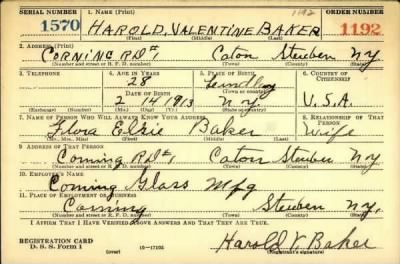 SERIAL NUMBER 1. NAME (Print) 1192 ORDER NUMBER
1570 HAROLD VALENTINE BAKER 1192
(First) (Middle) (Last)
2. ADDRESS (Print)
CORNING RD#1 Caton Steuben N.Y.
(Number and street or R. F. D. number) (Town) (County) (State)
3. TELEPHONE 4. AGE IN YEARS 5. PLACE OF BIRTH 6. COUNTRY OF CITIZENSHIP
28 Lindley
DATE OF BIRTH (Town or county)
2 14 1913 N.Y. U.S.A.
(Exchange) (Number) (Mo.) (Day) (Yr.) (State or country)
7. NAME OF PERSON WHO WILL ALWAYS KNOW YOUR ADDRESS 8. RELATIONSHIP OF THAT PERSON
Flora Elsie Baker Wife
(Mr., Mrs., Miss) (First) (Middle) (Last)
9. ADDRESS OF THAT PERSON
Corning RD#1 Caton Steuben N.Y.
(Number and street or R. F. D. number) (Town) (County) (State)
10. EMPLOYER'S NAME
Corning Glass Mfg
11. PLACE OF EMPLOYMENT OR BUSINESS
Corning Steuben N.Y.
(Number and street or R. F. D. number) (Town) (County) (State)
I AFFIRM THAT I HAVE VERIFIED ABOVE ANSWERS AND THAT THEY ARE TRUE.
REGISTRATION CARD
D. S. S. Form 1 (over) 16—17105 Harold V. Baker
(Registrant's signature)